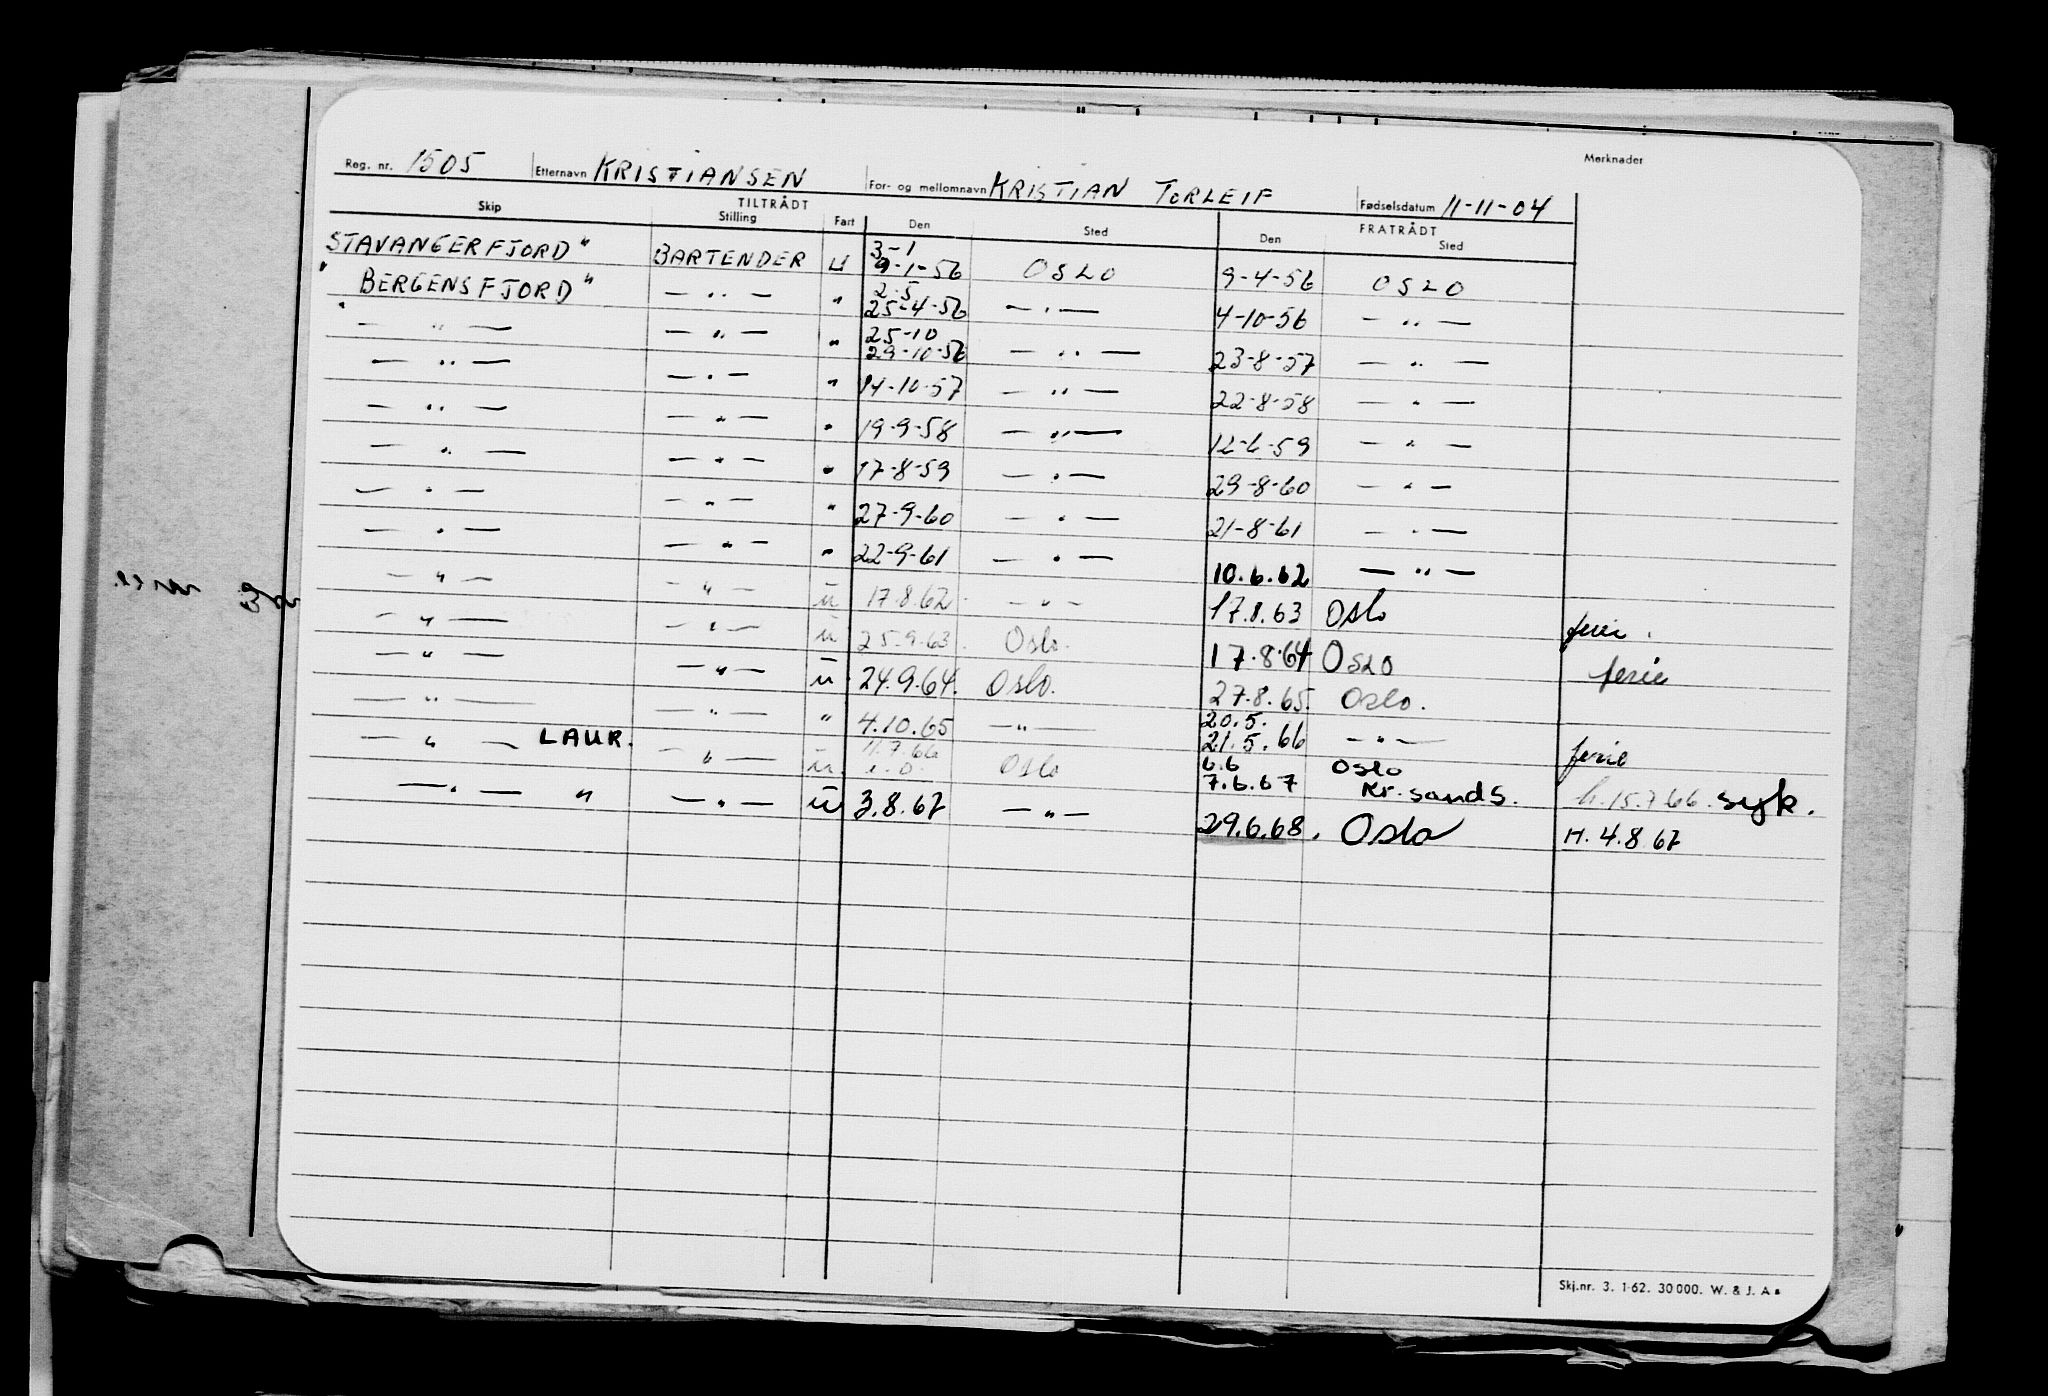 Merknader
Reg. nr. 1505 Etternavn KRISTIANSEN For- og mellomnavn KRISTIAN TORLEIF Fødselsdatum 11-11-04
TILTRÅDT FRATRÅDT
Skip Stilling Fart Den Sted Den Sted
STAVANGERFJORD" BARTENDER U 3-1 9-1-56 OSLO 9-4-56 OSLO
" BERGENSFJORD" — " — " 2-5 25-4-56 — " — 4-10-56 — " —
" — " — — " — " 25-10 29-10-56 — " — 23-8-57 — " —
— " — — " — " 14-10-57 — " — 22-8-58 — " —
— " — — " — " 19-9-58 — " — 12-6-59 — " —
— " — — " — " 17-8-59 — " — 29-8-60 — " —
— " — — " — " 27-9-60 — " — 21-8-61 — " —
— " — — " — " 22-9-61 — " — 10.6.62 — " —
— " — — " — u 17.8.62 — " — 17.8.63 Oslo ferie.
— " — — " — u 25.9.63. Oslo. 17.8.64 OSLO ferie
— " — — " — u 24.9.64. Oslo. 27.8.65. Oslo.
— " — — " — " 4.10.65 — " — 20.5. 21.5.66 — " — ferie
— " — LAUR. — " — u. 11.7.66 Oslo 6.6 7.6.67 Oslo Kr.sands. h.15.7.66. syk.
— " — " — " — u 3.8.67 — " — 29.6.68. Oslo H. 4.8 67
Skj.nr. 3. 1-62. 30 000. W. & J. A s